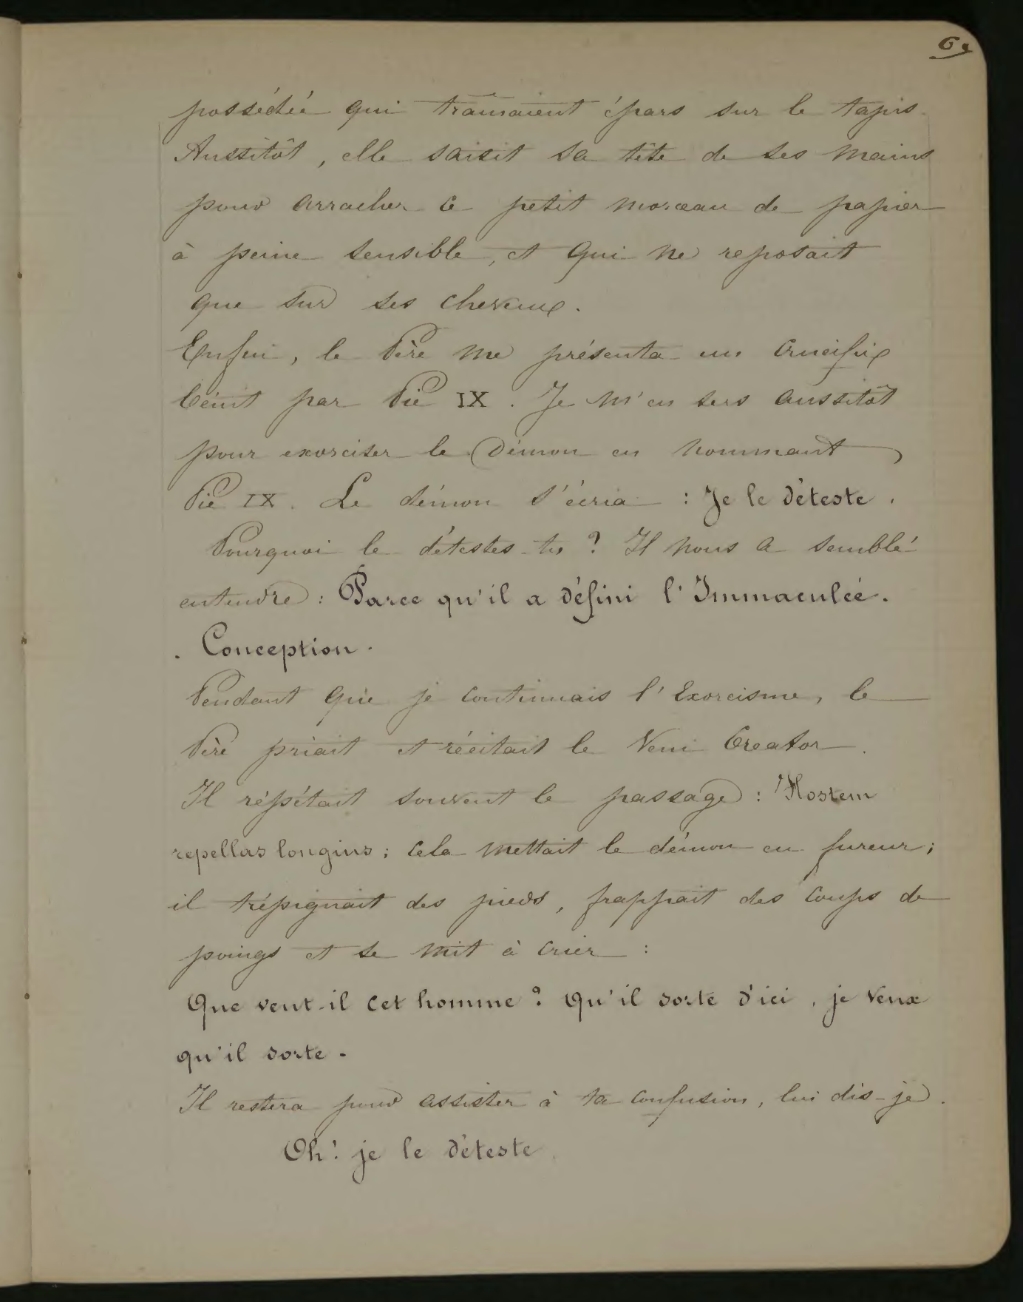 possédée qui trainaient épars sur le tapis.
Aussitôt, elle saisit sa tête de ses mains
pour arracher ce petit morceau de papier
à peine sensible, et qui ne reposait
que sur ses cheveux.
Enfin, le Père me présenta un crucifix
bénit par Pie IX. Je m'en sers aussitôt
pour exorciser le Démon en nommant
Pie IX. Le démon s'écria : Je le déteste.
Pourquoi le détestes-tu ? Il nous a semblé
entendre : Parce qu'il a défini l'Immaculée.
. Conception.
Pendant que je continuais l'Exorcisme, le
Père priait et récitait le Veni Creator.
Il répétait souvent le passage : Hostem
repellas longius ; cela mettait le démon en fureur ;
il trépignait des pieds, frappait des coups de
poings et se mit à crier :
Que veut-il cet homme ? Qu'il sorte d'ici, je veux
qu'il sorte.
Il restera pour assister à ta confusion, lui dis-je.
Oh ! je le déteste.